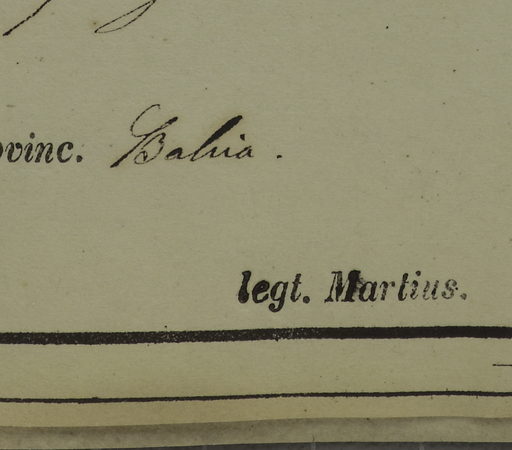 ovinc. Bahia.
legt. Martius.